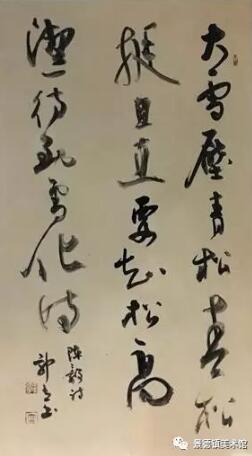 大雪壓青松青松
挺且直要知松高
潔待到雪化時
陳毅詩
郭
书
景德镇美术馆